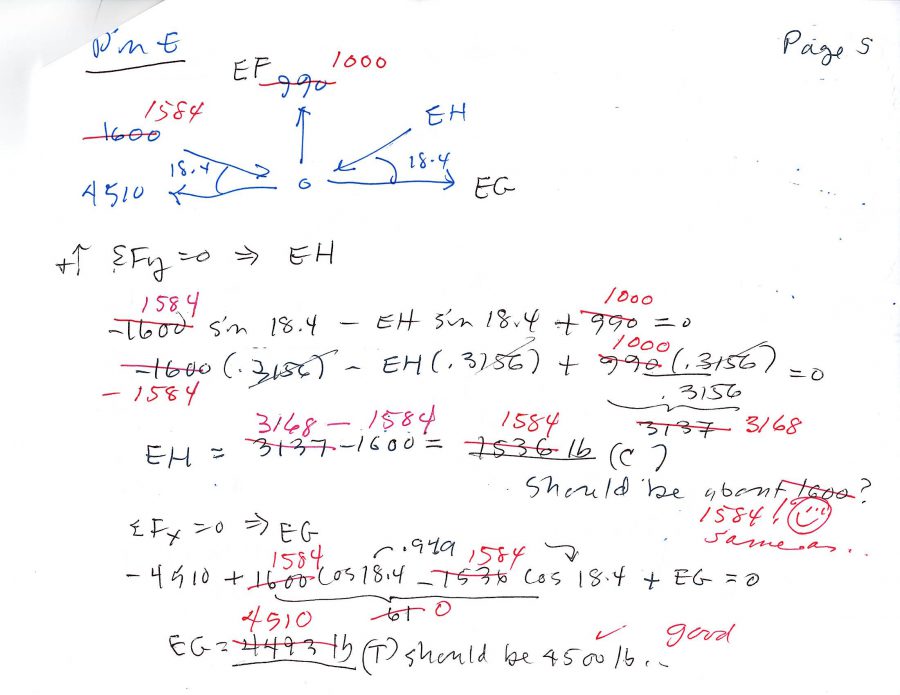 Pin E
Page 5
EF 990 1000
1584
1600
EH
18.4 18.4
4510
EG
+↑ ΣFy = 0 ⇒ EH
1584 1000
-1600 sin 18.4 - EH sin 18.4 + 990 = 0
1000
-1600 (.3156) - EH (.3156) + 990 (.3156) = 0
- 1584 .3156
3168 - 1584 1584 3137 3168
EH = 3137 - 1600 = 1536 lb (C)
should be about 1600?
1584!
same as..
ΣFx = 0 ⇒ EG
.949
1584 1584
- 4510 + 1600 cos 18.4 - 1536 cos 18.4 + EG = 0
61 0
4510 ✓ good
EG = 4493 lb (T) should be 4500 lb..